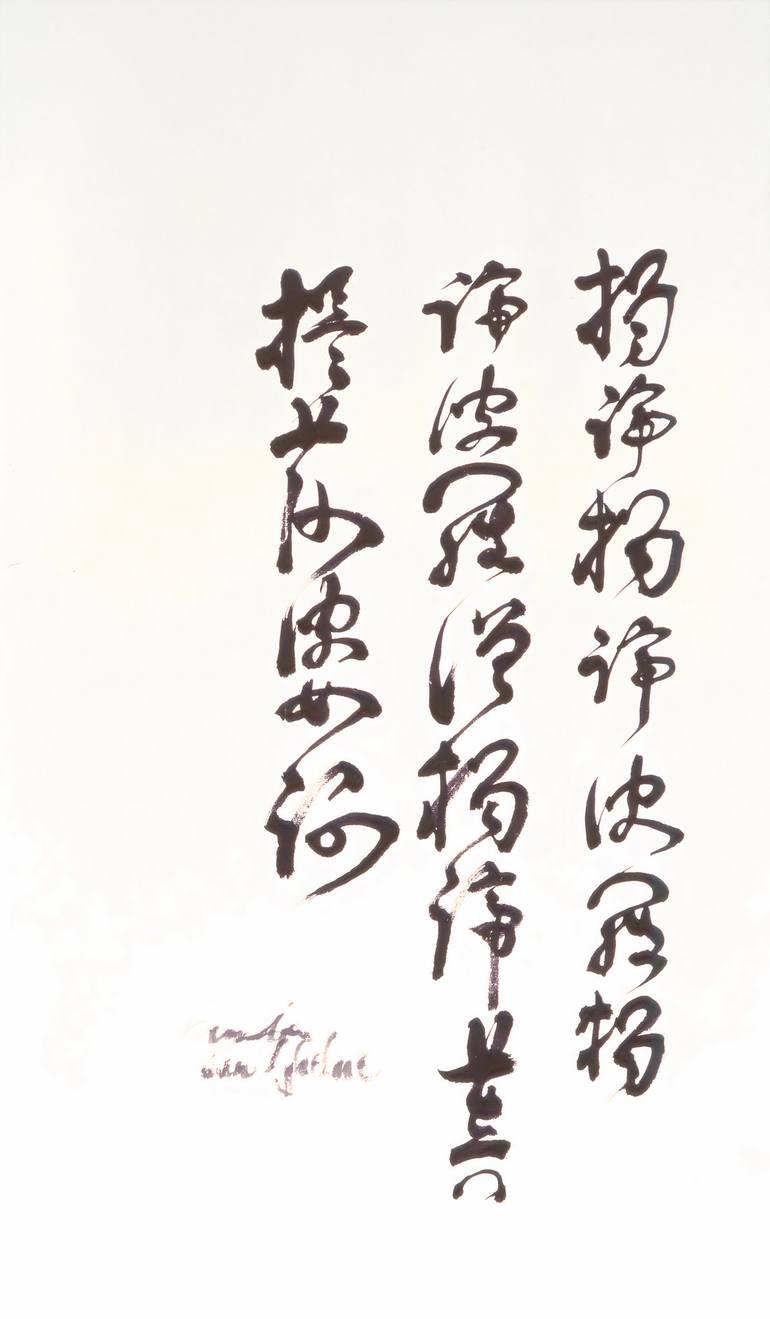 揭諦揭諦波羅揭
諦波羅僧揭諦菩
提莎婆訶